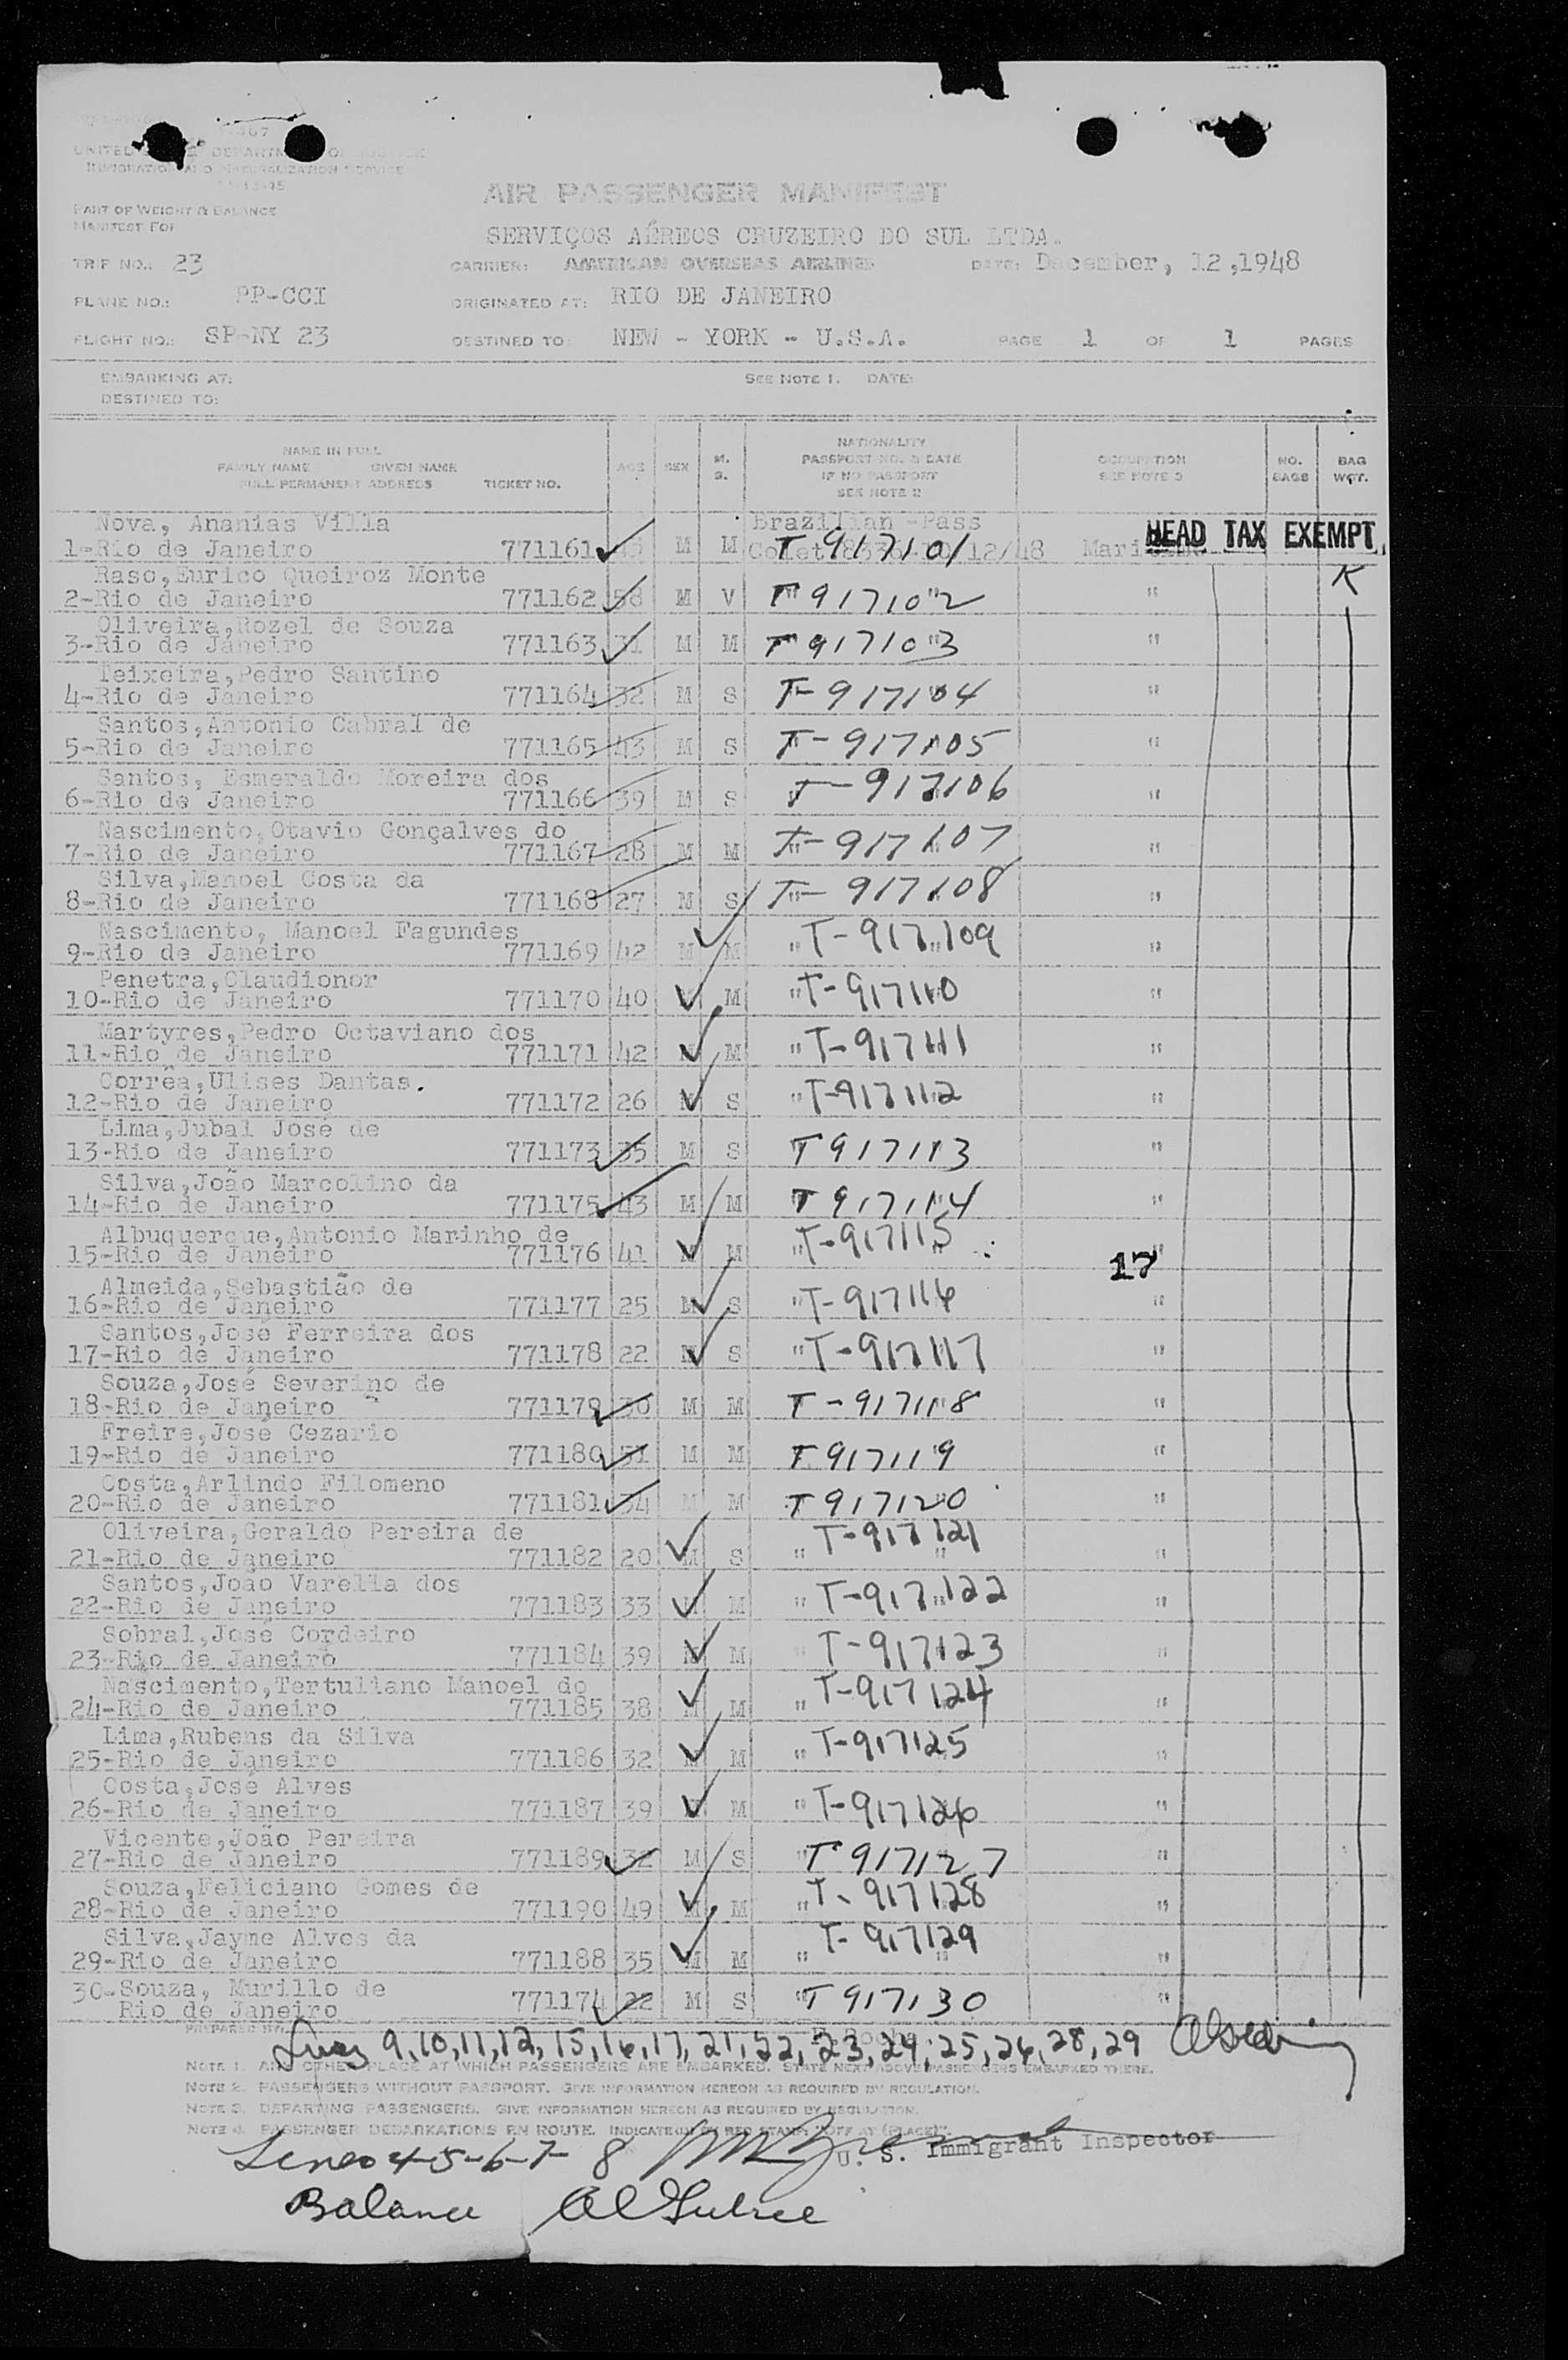 UNITED STATES DEPARTMENT OF JUSTICE
IMMIGRATION AND NATURALIZATION SERVICE
AIR PASSENGER MANIFEST
PART OF WEIGHT & BALANCE
MANIFEST FOR
SERVIÇOS AÉREOS CRUZEIRO DO SUL LTDA.
TRIP NO.: 23 CARRIER: AMERICAN OVERSEAS AIRLINES DATE: December, 12,1948
PLANE NO.: PP-CCI ORIGINATED AT: RIO DE JANEIRO
FLIGHT NO.: SP-NY 23 DESTINED TO: NEW - YORK - U.S.A. PAGE 1 OF 1 PAGES
EMBARKING AT: SEE NOTE 1. DATE:
DESTINED TO:
NAME IN FULL
FAMILY NAME GIVEN NAME
FULL PERMANENT ADDRESS TICKET NO. AGE SEX M. S. NATIONALITY PASSPORT NO. & DATE IF NO PASSPORT SEE NOTE 2 OCCUPATION SEE NOTE 3 NO. BAGS BAG WGT.
Nova, Ananias Villa Brazilian-Pass
1-Rio de Janeiro 771161 M M T 917101 12/48 HEAD TAX EXEMPT
Raso,Eurico Queiroz Monte K
2-Rio de Janeiro 771162 58 M V T 917102 "
Oliveira,Rozel de Souza
3-Rio de Janeiro 771163 31 M M T 917103 "
Teixeira,Pedro Santino
4-Rio de Janeiro 771164 32 M S T-917104 "
Santos,Antonio Cabral de
5-Rio de Janeiro 771165 43 M S T-917105 "
Santos, Esmeraldo Moreira dos
6-Rio de Janeiro 771166 39 M S T-917106 "
Nascimento,Otavio Gonçalves do
7-Rio de Janeiro 771167 28 M M T-917107 "
Silva,Manoel Costa da
8-Rio de Janeiro 771168 27 M S T-917108 "
Nascimento, Manoel Fagundes
9-Rio de Janeiro 771169 42 M M " T-917109 "
Penetra,Claudionor
10-Rio de Janeiro 771170 40 M "T-917110 "
Martyres,Pedro Octaviano dos
11-Rio de Janeiro 771171 42 M M "T-917111 "
Corrêa,Ulises Dantas.
12-Rio de Janeiro 771172 26 M S "T-917112 "
Lima,Jubal José de
13-Rio de Janeiro 771173 35 M S T 917113 "
Silva,João Marcolino da
14-Rio de Janeiro 771175 43 M M T 917114 "
Albuquerque,Antonio Marinho de
15-Rio de Janeiro 771176 41 M M "T-917115 17 "
Almeida,Sebastião de
16-Rio de Janeiro 771177 25 M S "T-917116 "
Santos,José Ferreira dos
17-Rio de Janeiro 771178 22 M S "T-917117 "
Souza,José Severino de
18-Rio de Janeiro 771179 30 M M T-917118 "
Freire,José Cezario
19-Rio de Janeiro 771180 31 M M T 917119 "
Costa,Arlindo Filomeno
20-Rio de Janeiro 771181 34 M M T 917120 "
Oliveira,Geraldo Pereira de
21-Rio de Janeiro 771182 20 M S " T-917121 "
Santos,João Varella dos
22-Rio de Janeiro 771183 33 M M " T-917122 "
Sobral,José Cordeiro
23-Rio de Janeiro 771184 39 M M " T-917123 "
Nascimento,Tertuliano Manoel do
24-Rio de Janeiro 771185 38 M M " T-917124 "
Lima,Rubens da Silva
25-Rio de Janeiro 771186 32 M M " T-917125 "
Costa,José Alves
26-Rio de Janeiro 771187 39 M M " T-917126 "
Vicente,João Pereira
27-Rio de Janeiro 771189 32 M S "T 917127 "
Souza,Feliciano Gomes de
28-Rio de Janeiro 771190 49 M M "T-917128 "
Silva,Jayme Alves da
29-Rio de Janeiro 771188 35 M M " T-917129 "
30-Souza, Murillo de
Rio de Janeiro 771174 22 M S "T 917130 "
PREPARED BY
Lines 9,10,11,12, 15,16,17, 21,22, 23,24, 25,26, 28,29
NOTE 1. ANY OTHER PLACE AT WHICH PASSENGERS ARE EMBARKED. STATE NEXT ABOVE PASSENGERS EMBARKED THERE.
NOTE 2. PASSENGERS WITHOUT PASSPORT. GIVE INFORMATION HEREON AS REQUIRED BY REGULATION.
NOTE 3. DEPARTING PASSENGERS. GIVE INFORMATION HEREON AS REQUIRED BY REGULATION.
NOTE 4. PASSENGER DEBARKATIONS EN ROUTE. INDICATE IN BY RED STAMP: "OFF AT (PLACE)".
Lines 4-5-6-7- 8 U. S. Immigrant Inspector
Balance